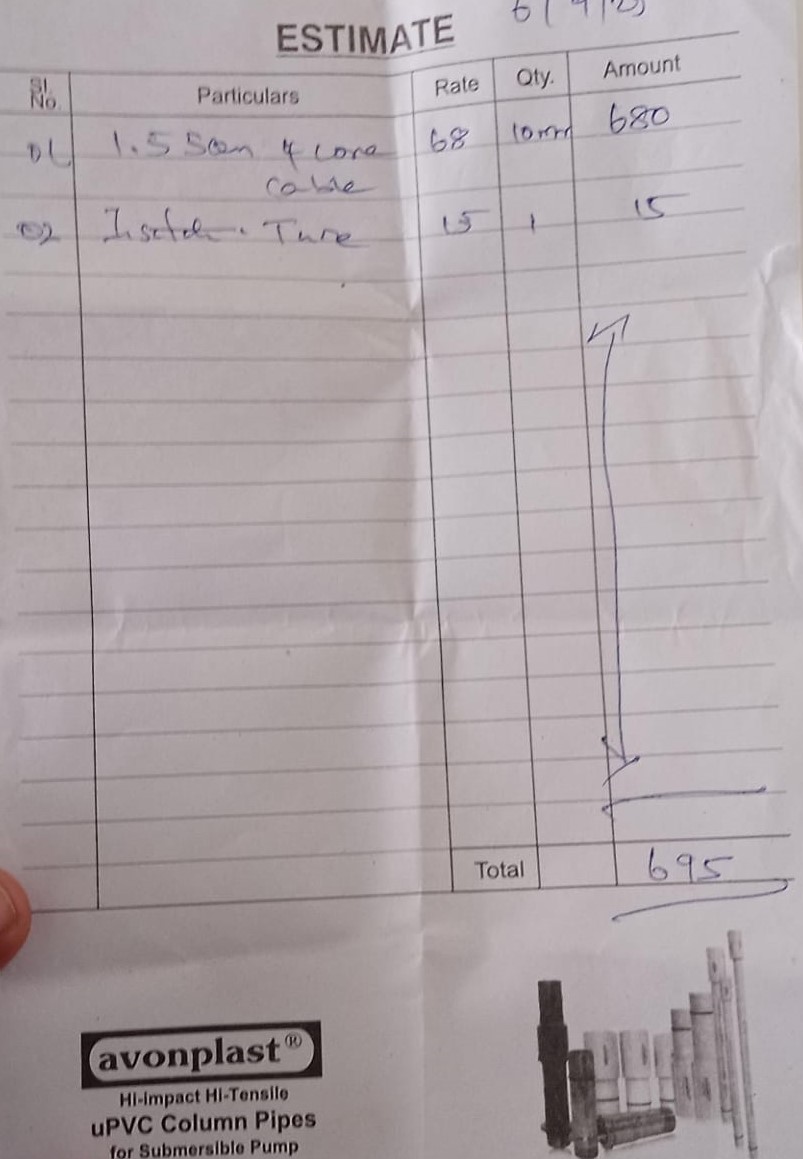 ESTIMATE
Sl. No. Particulars Rate Qty. Amount
01 1.5 Sqm 4 Core 68 10mtr 680
cable
02 15 1 15
Total 695
avonplast®
Hi-Impact Hi-Tensile
uPVC Column Pipes
for Submersible Pump